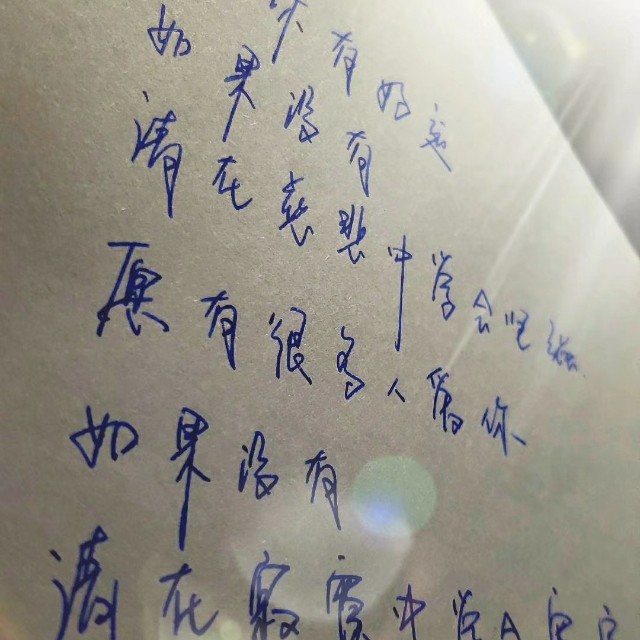 有好运
如果没有
请在悲中学会坚强
愿有很多人爱你
如果没有
请在寂寞中学会